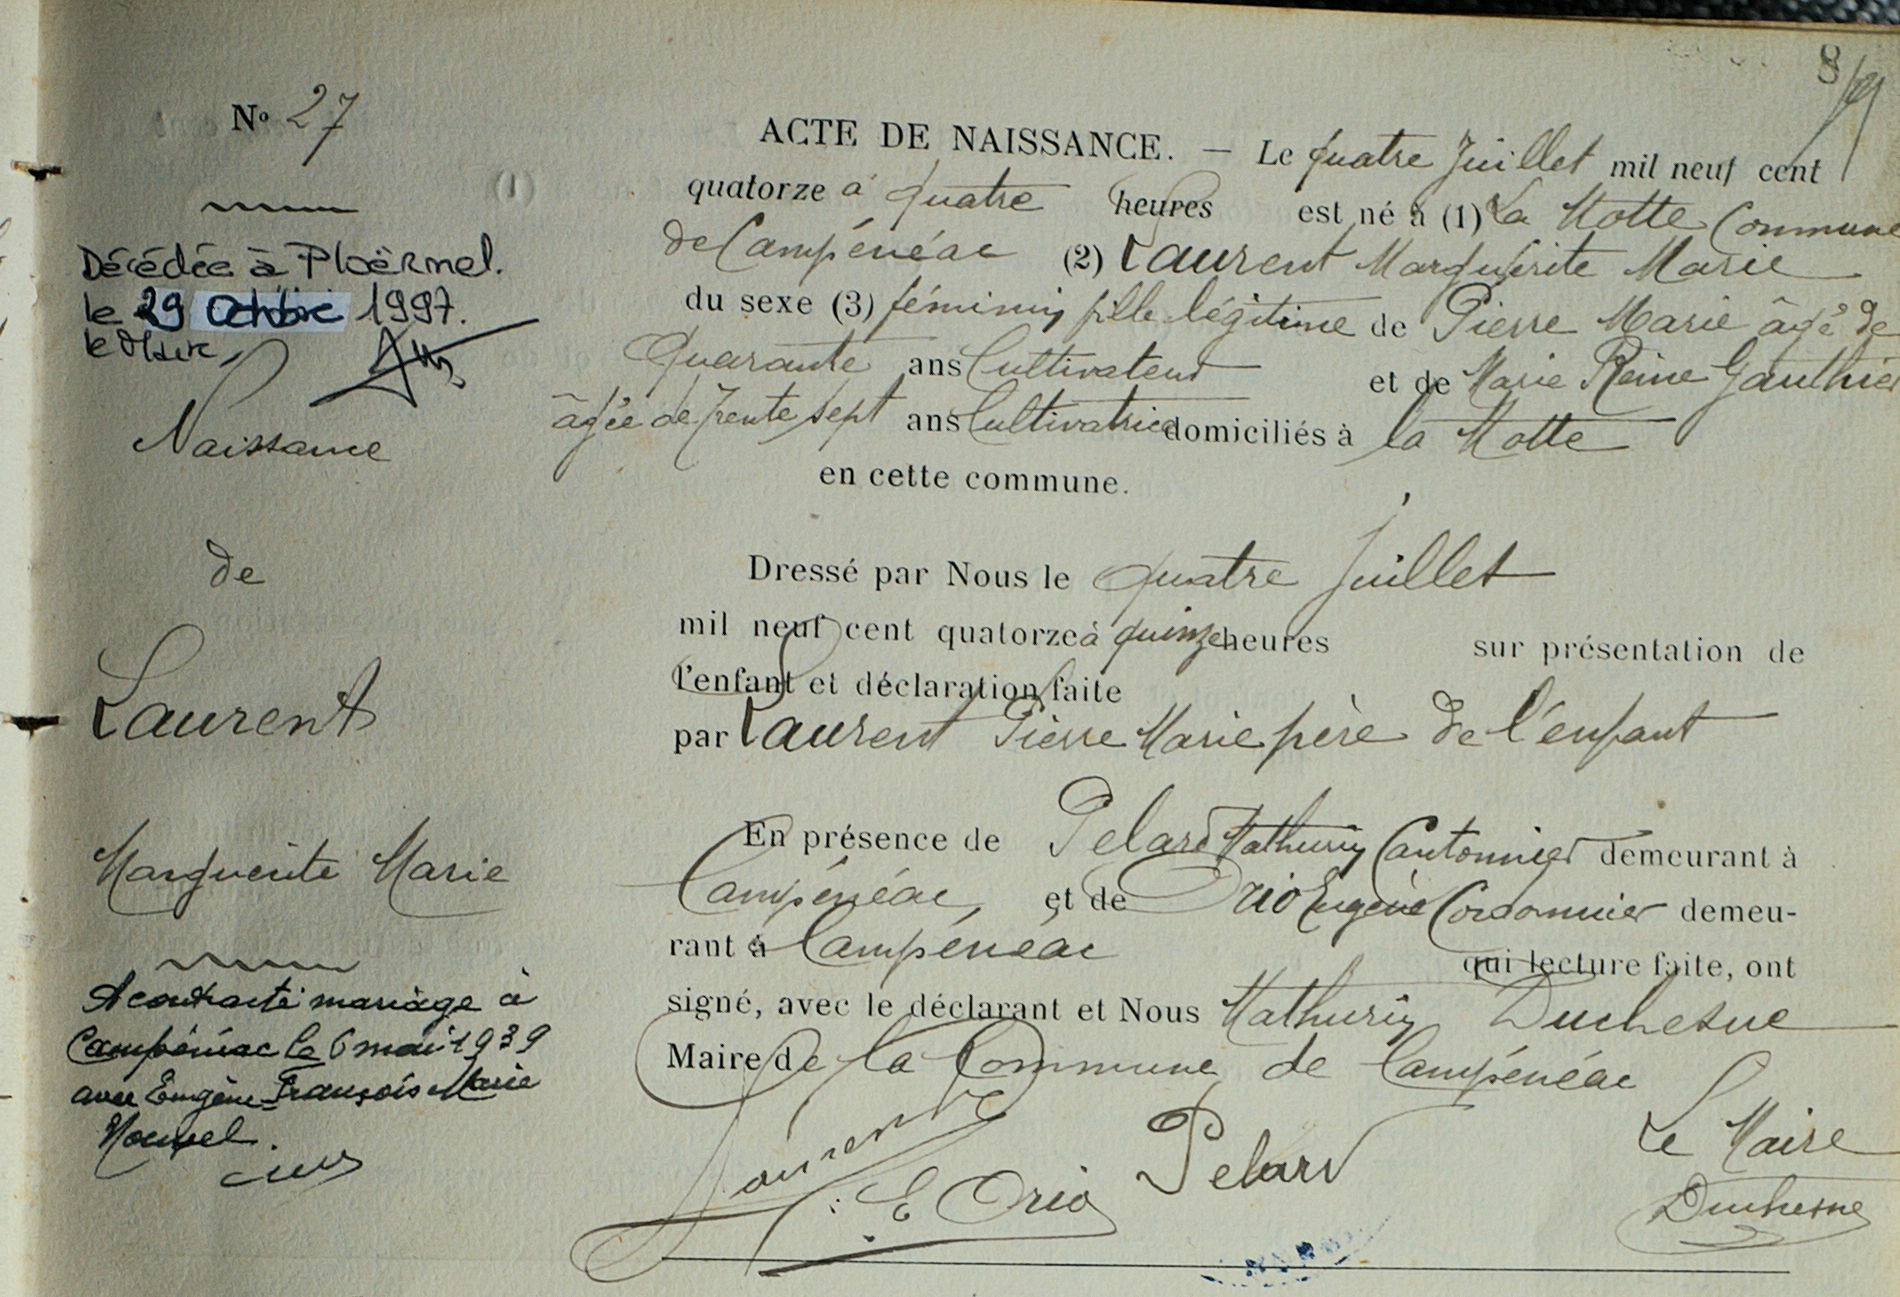 8
N° 27
Décédée à Ploërmel.
le 29 Octobre 1997.
le Maire,
Naissance
de
Laurent
Marguerite Marie
A contracté mariage à
Campénéac le 6 mai 1939
avec Eugène François Marie
Nouvel.
ACTE DE NAISSANCE. — Le quatre Juillet mil neuf cent
quatorze à quatre heures est né à (1) La Motte Commune
de Campénéac (2) Laurent Marguerite Marie
du sexe (3) féminin fille légitime de Pierre Marie âgé de
Quarante ans Cultivateur et de Marie Reine Gauthier
âgée de trente sept ans Cultivatrice domiciliés à la Motte
en cette commune.
Dressé par Nous le quatre Juillet
mil neuf cent quatorze à quinze heures sur présentation de
l'enfant et déclaration faite
par Laurent Pierre Marie père de l'enfant
En présence de Pelard Mathurin Cantonnier demeurant à
Campénéac, et de Orio Eugène Cordonnier demeu-
rant à Campénéac qui lecture faite, ont
signé, avec le déclarant et Nous Mathurin Duchesne
Maire de la Commune de Campénéac
Laurent
E Orio
Pelard
Le Maire
Duchesne